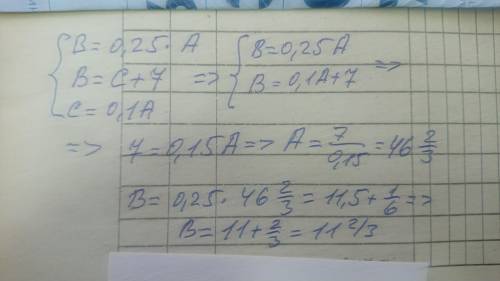 { B = 0,25 · A
B = C + 7
C = 0,1A
=> { B = 0,25A
B = 0,1A + 7 =>
=> 7 = 0,15A => A = 7/0,15 = 46 2/3
B = 0,25 · 46 2/3 = 11,5 + 1/6 =>
B = 11 + 2/3 = 11 2/3